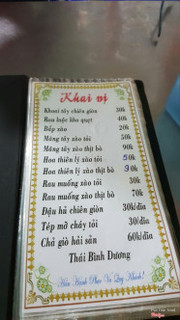 Khai vị
Khoai tây chiên giòn 30k
Rau luộc kho quẹt 40k
Bắp xào 20k
Măng tây xào tỏi 50k
Măng tây xào thịt bò 90k
Hoa thiên lý xào tỏi 50k
Hoa thiên lý xào thịt bò 90k
Rau muống xào tỏi 30k
Rau muống xào thịt bò 70k
Đậu hủ chiên giòn 30k/dĩa
Tép mỡ cháy tỏi 30k/dĩa
Chả giò hải sản 60k/dĩa
Thái Bình Dương
Hân Hạnh Phục Vụ Quý Khách!